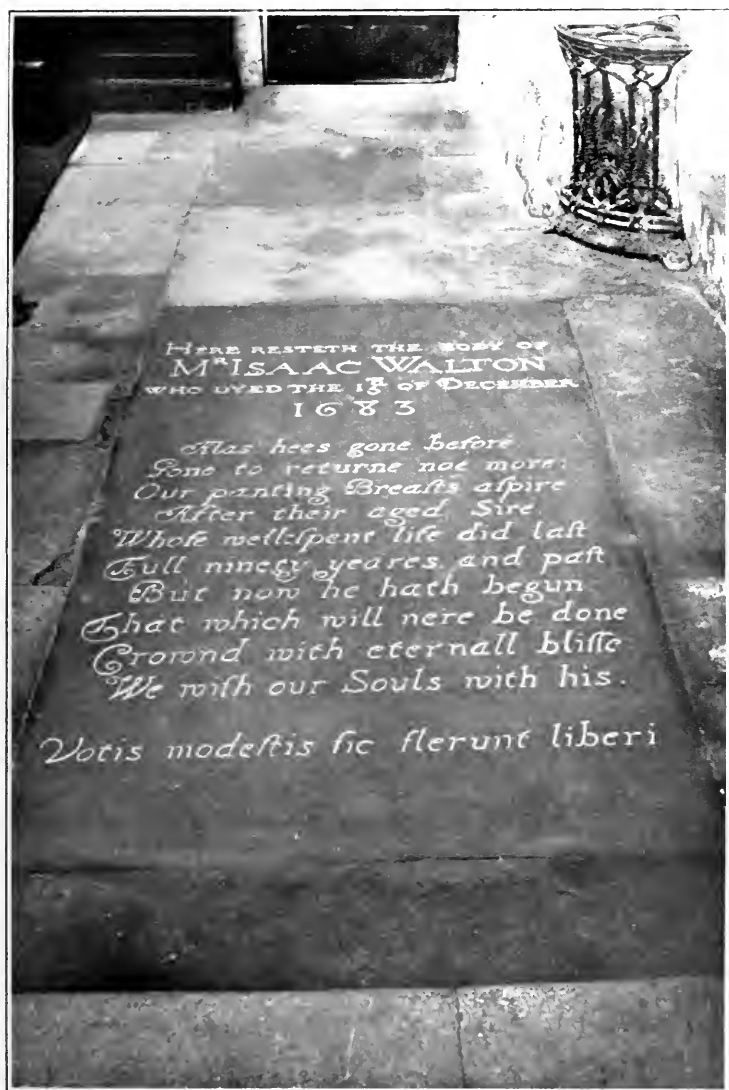 HERE RESTETH THE BODY OF
Mʀ ISAAC WALTON
WHO DYED THE 15ᵀᴴ OF DECEMBER
1683
Alas hees gone before
Gone to returne noe more:
Our panting Breaſts aſpire
After their aged Sire.
Whoſe well ſpent life did laſt
Full ninety yeares and paſt
But now he hath begun
That which will nere be done
Crownd with eternall bliſſe
We wiſh our Souls with his.
Votis modeſtis ſic flerunt liberi